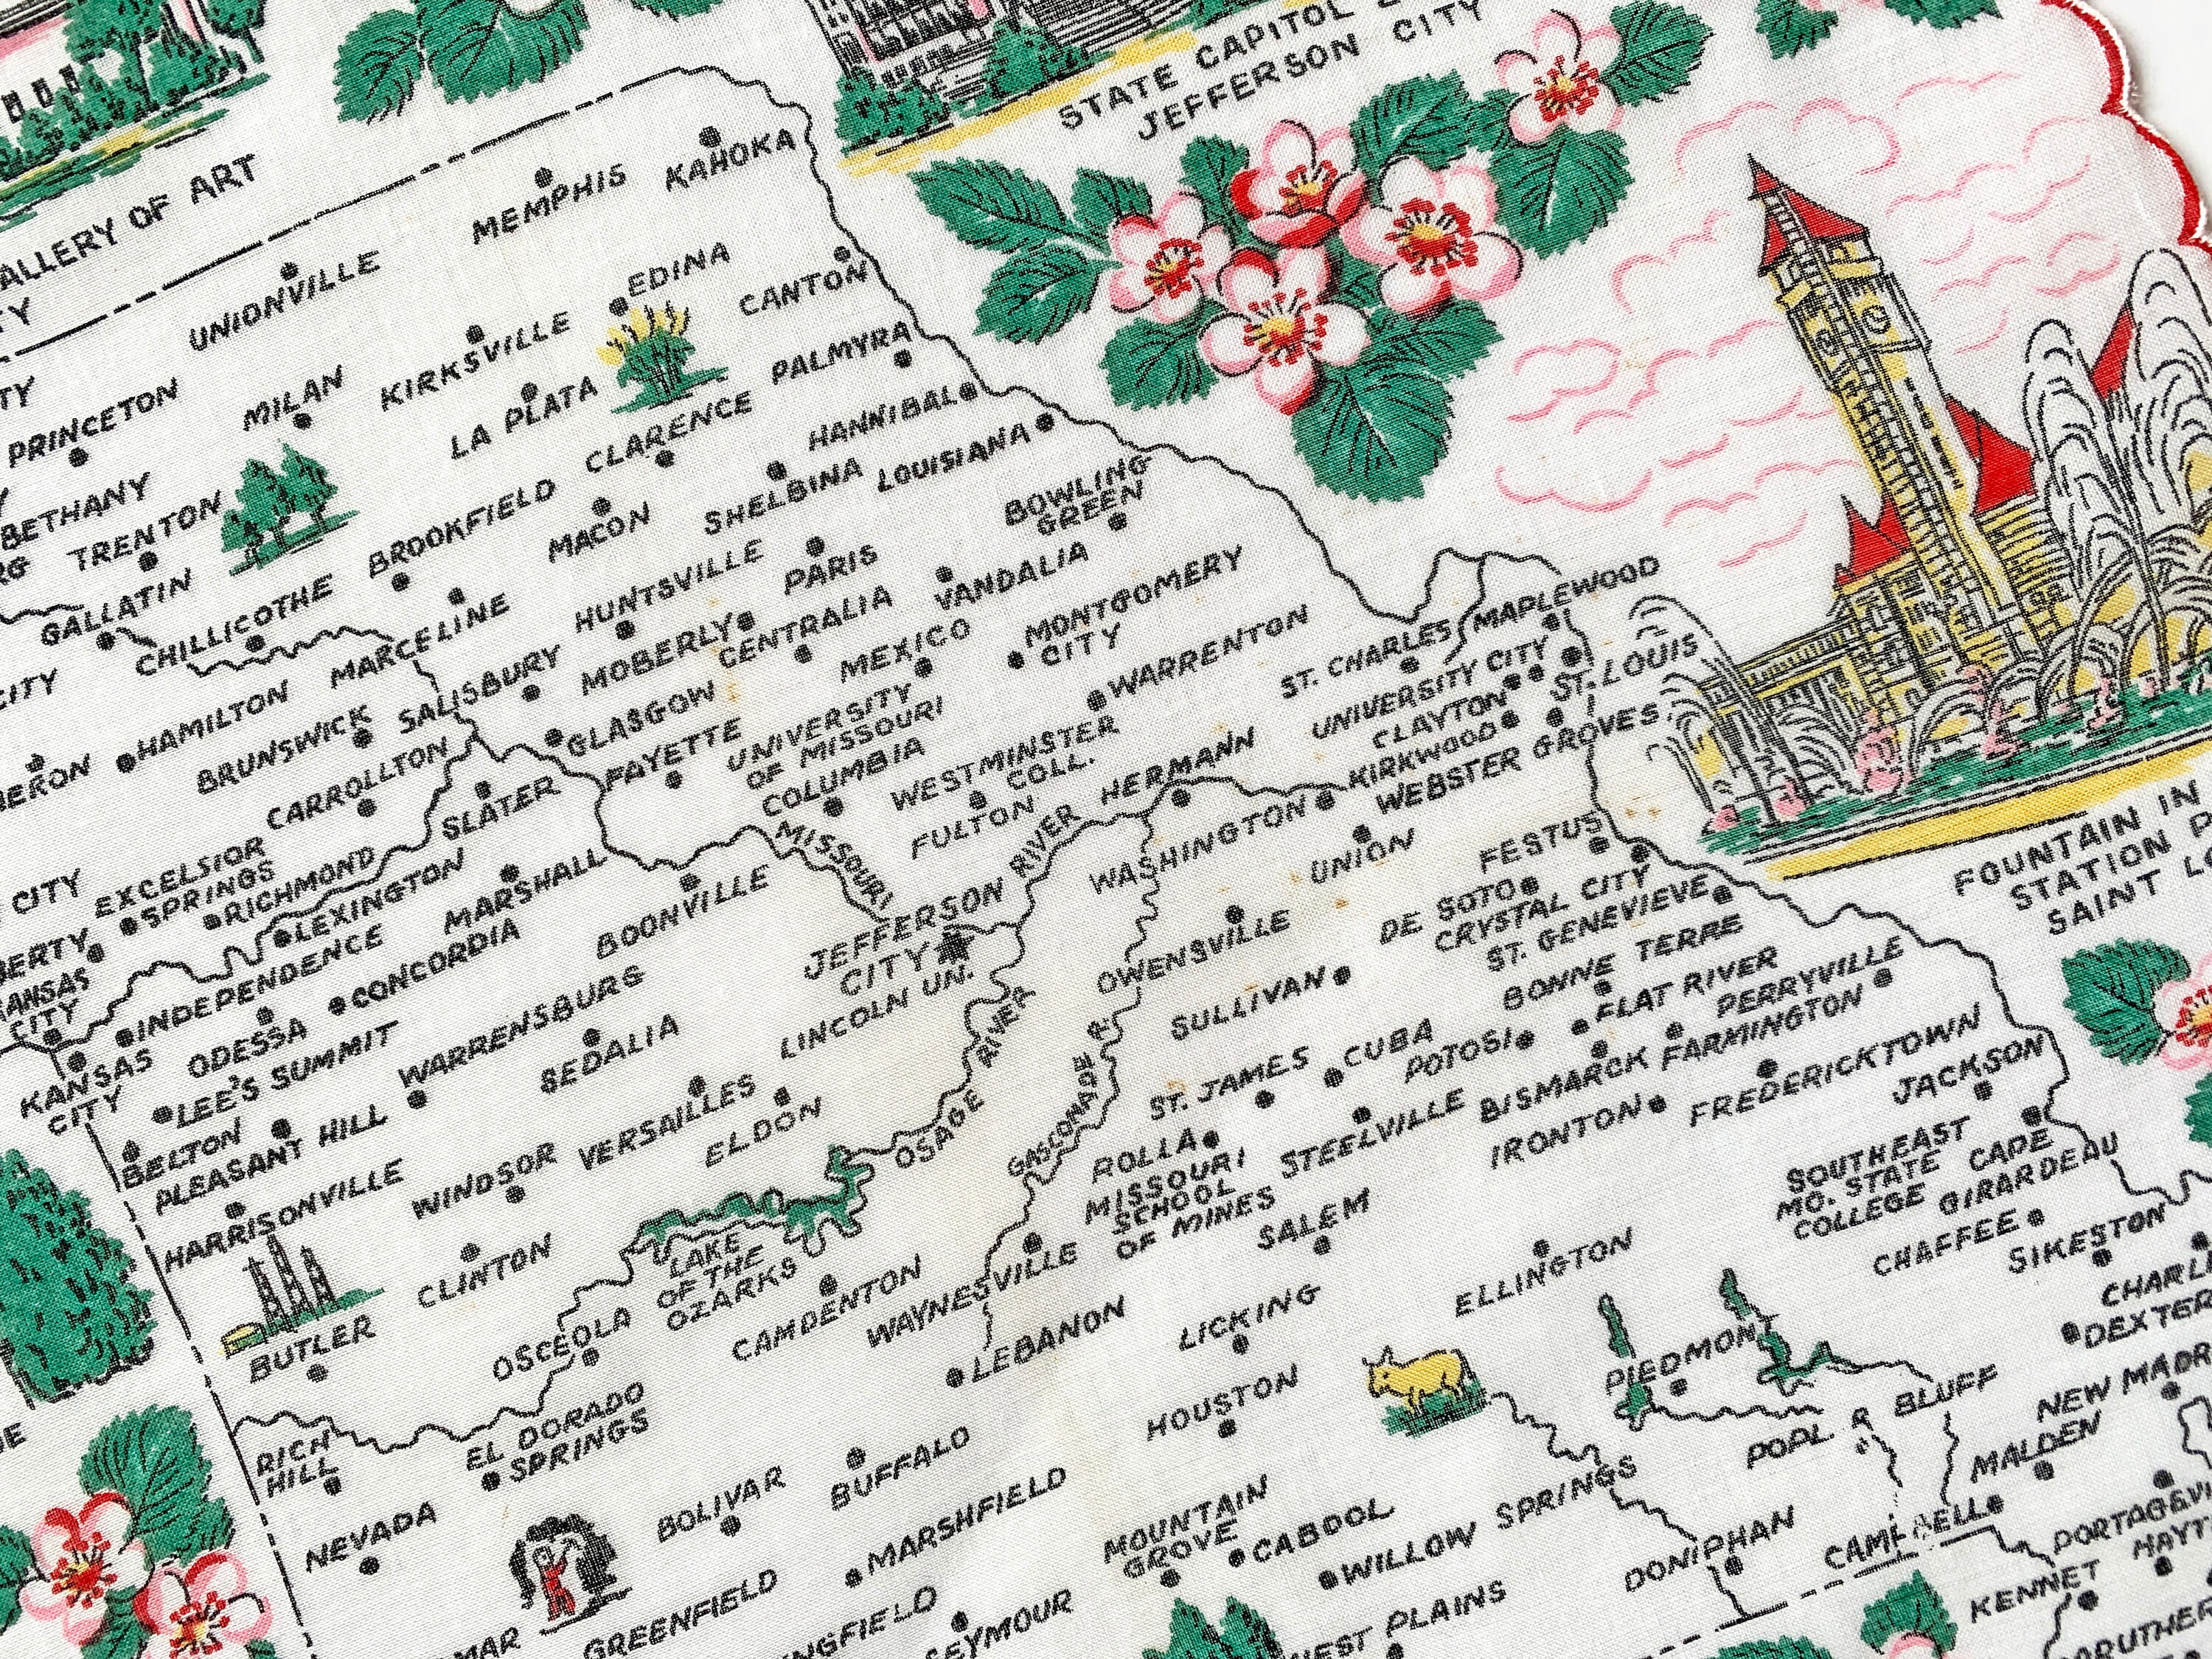 STATE CAPITOL
JEFFERSON CITY
ALLERY OF ART
TY
TY
KAHOKA
MEMPHIS
UNIONVILLE
EDINA
CANTON
KIRKSVILLE
MILAN
PRINCETON
LA PLATA
PALMYRA
CLARENCE
HANNIBAL
BETHANY
TRENTON
BROOKFIELD
MACON
SHELBINA
LOUISIANA
BOWLING
GREEN
RG
GALLATIN
CHILLICOTHE
MARCELINE
HUNTSVILLE
PARIS
VANDALIA
CITY
HAMILTON
SALISBURY
MOBERLY
CENTRALIA
MEXICO
MONTGOMERY
CITY
WARRENTON
ST. CHARLES
MAPLEWOOD
UNIVERSITY CITY
ST. LOUIS
CLAYTON
KIRKWOOD
WEBSTER GROVES
ERON
BRUNSWICK
CARROLLTON
GLASGOW
FAYETTE
UNIVERSITY
OF MISSOURI
COLUMBIA
WESTMINSTER
COLL.
FULTON
HERMANN
WASHINGTON
UNION
FESTUS
FOUNTAIN IN
STATION P
SAINT LO
CITY
EXCELSIOR
SPRINGS
RICHMOND
SLATER
LEXINGTON
MARSHALL
BOONVILLE
MISSOURI
RIVER
JEFFERSON
CITY
LINCOLN UN.
OWENSVILLE
DE SOTO
CRYSTAL CITY
ST. GENEVIEVE
BERTY
KANSAS
CITY
INDEPENDENCE
CONCORDIA
ODESSA
WARRENSBURG
SEDALIA
OSAGE RIVER
GASCONADE R.
SULLIVAN
BONNE TERRE
FLAT RIVER
PERRYVILLE
KANSAS
CITY
LEE'S SUMMIT
BELTON
PLEASANT HILL
VERSAILLES
ELDON
ST. JAMES
CUBA
POTOSI
BISMARCK
FARMINGTON
FREDERICKTOWN
JACKSON
HARRISONVILLE
WINDSOR
ROLLA
MISSOURI
SCHOOL
OF MINES
STEELVILLE
IRONTON
SOUTHEAST
MO. STATE
COLLEGE
CAPE
GIRARDEAU
CLINTON
LAKE
OF THE
OZARKS
CAMDENTON
WAYNESVILLE
SALEM
ELLINGTON
CHAFFEE
SIKESTON
CHARL
DEXTER
BUTLER
OSCEOLA
LEBANON
LICKING
PIEDMONT
POPLAR BLUFF
NEW MADR
RICH
HILL
EL DORADO
SPRINGS
HOUSTON
MALDEN
NEVADA
BOLIVAR
BUFFALO
MARSHFIELD
MOUNTAIN
GROVE
CABOOL
WILLOW SPRINGS
DONIPHAN
CAMPBELL
PORTAGEVI
HAYT
KENNET
MAR
GREENFIELD
NGFIELD
SEYMOUR
WEST PLAINS
ARUTHER